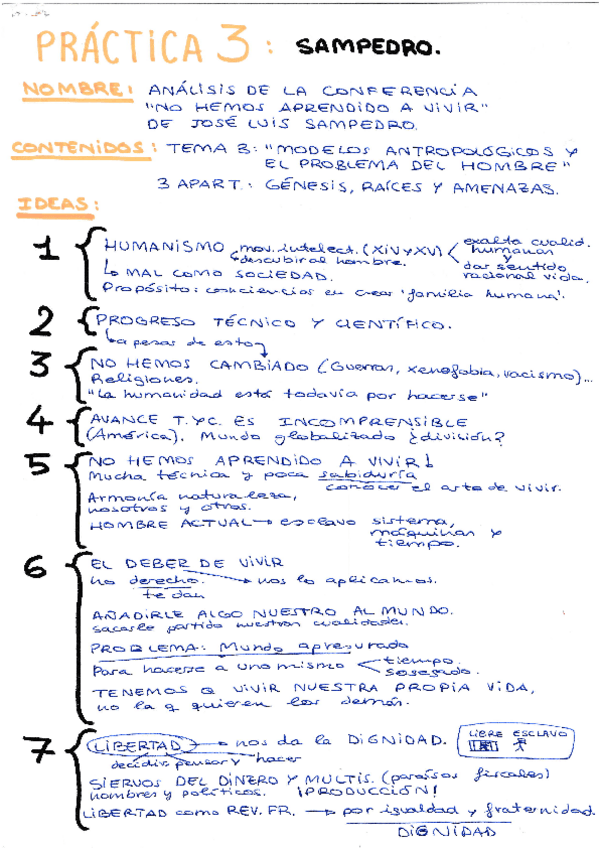 PRÁCTICA 3: SAMPEDRO.
NOMBRE: ANÁLISIS DE LA CONFERENCIA
"NO HEMOS APRENDIDO A VIVIR"
DE JOSÉ LUIS SAMPEDRO.
CONTENIDOS: TEMA 3: "MODELOS ANTROPOLÓGICOS Y
EL PROBLEMA DEL HOMBRE"
3 APART.: GÉNESIS, RAÍCES Y AMENAZAS.
IDEAS:
1 HUMANISMO mov. intelect. (XIV y XV) exalta cualid.
descubrir al hombre. humanas
y
dar sentido
↳ MAL COMO SOCIEDAD. racional vida.
Propósito: conciencias en crear 'familia humana'.
2 PROGRESO TÉCNICO Y CIENTÍFICO.
↳ a pesar de esto
3 NO HEMOS CAMBIADO (Guerras, xenofobia, racismo)...
Religiones.
"La humanidad está todavía por hacerse"
4 AVANCE T. y C. ES INCOMPRENSIBLE
(América). Mundo globalizado ¿división?
5 NO HEMOS APRENDIDO A VIVIR!
Mucha técnica y poca sabiduría
conocer el arte de vivir.
Armonía naturaleza,
nosotros y otros.
HOMBRE ACTUAL → esclavo sistema,
máquinas y
tiempo.
6 EL DEBER DE VIVIR
no derecho. → nos lo aplicamos.
te dan
AÑADIRLE ALGO NUESTRO AL MUNDO.
sacarle partido nuestras cualidades.
PROBLEMA: Mundo apresurado
Para hacerse a uno mismo tiempo.
sosegado.
TENEMOS Q VIVIR NUESTRA PROPIA VIDA,
no la q quieren los demás.
7 LIBERTAD → nos da la DIGNIDAD. LIBRE ESCLAVO
decidir pensar y hacer
SIERVOS DEL DINERO Y MULTIS. (paraísos fiscales)
hombres y políticos. ¡PRODUCCIÓN!
LIBERTAD como REV. FR. → por igualdad y fraternidad.
DIGNIDAD